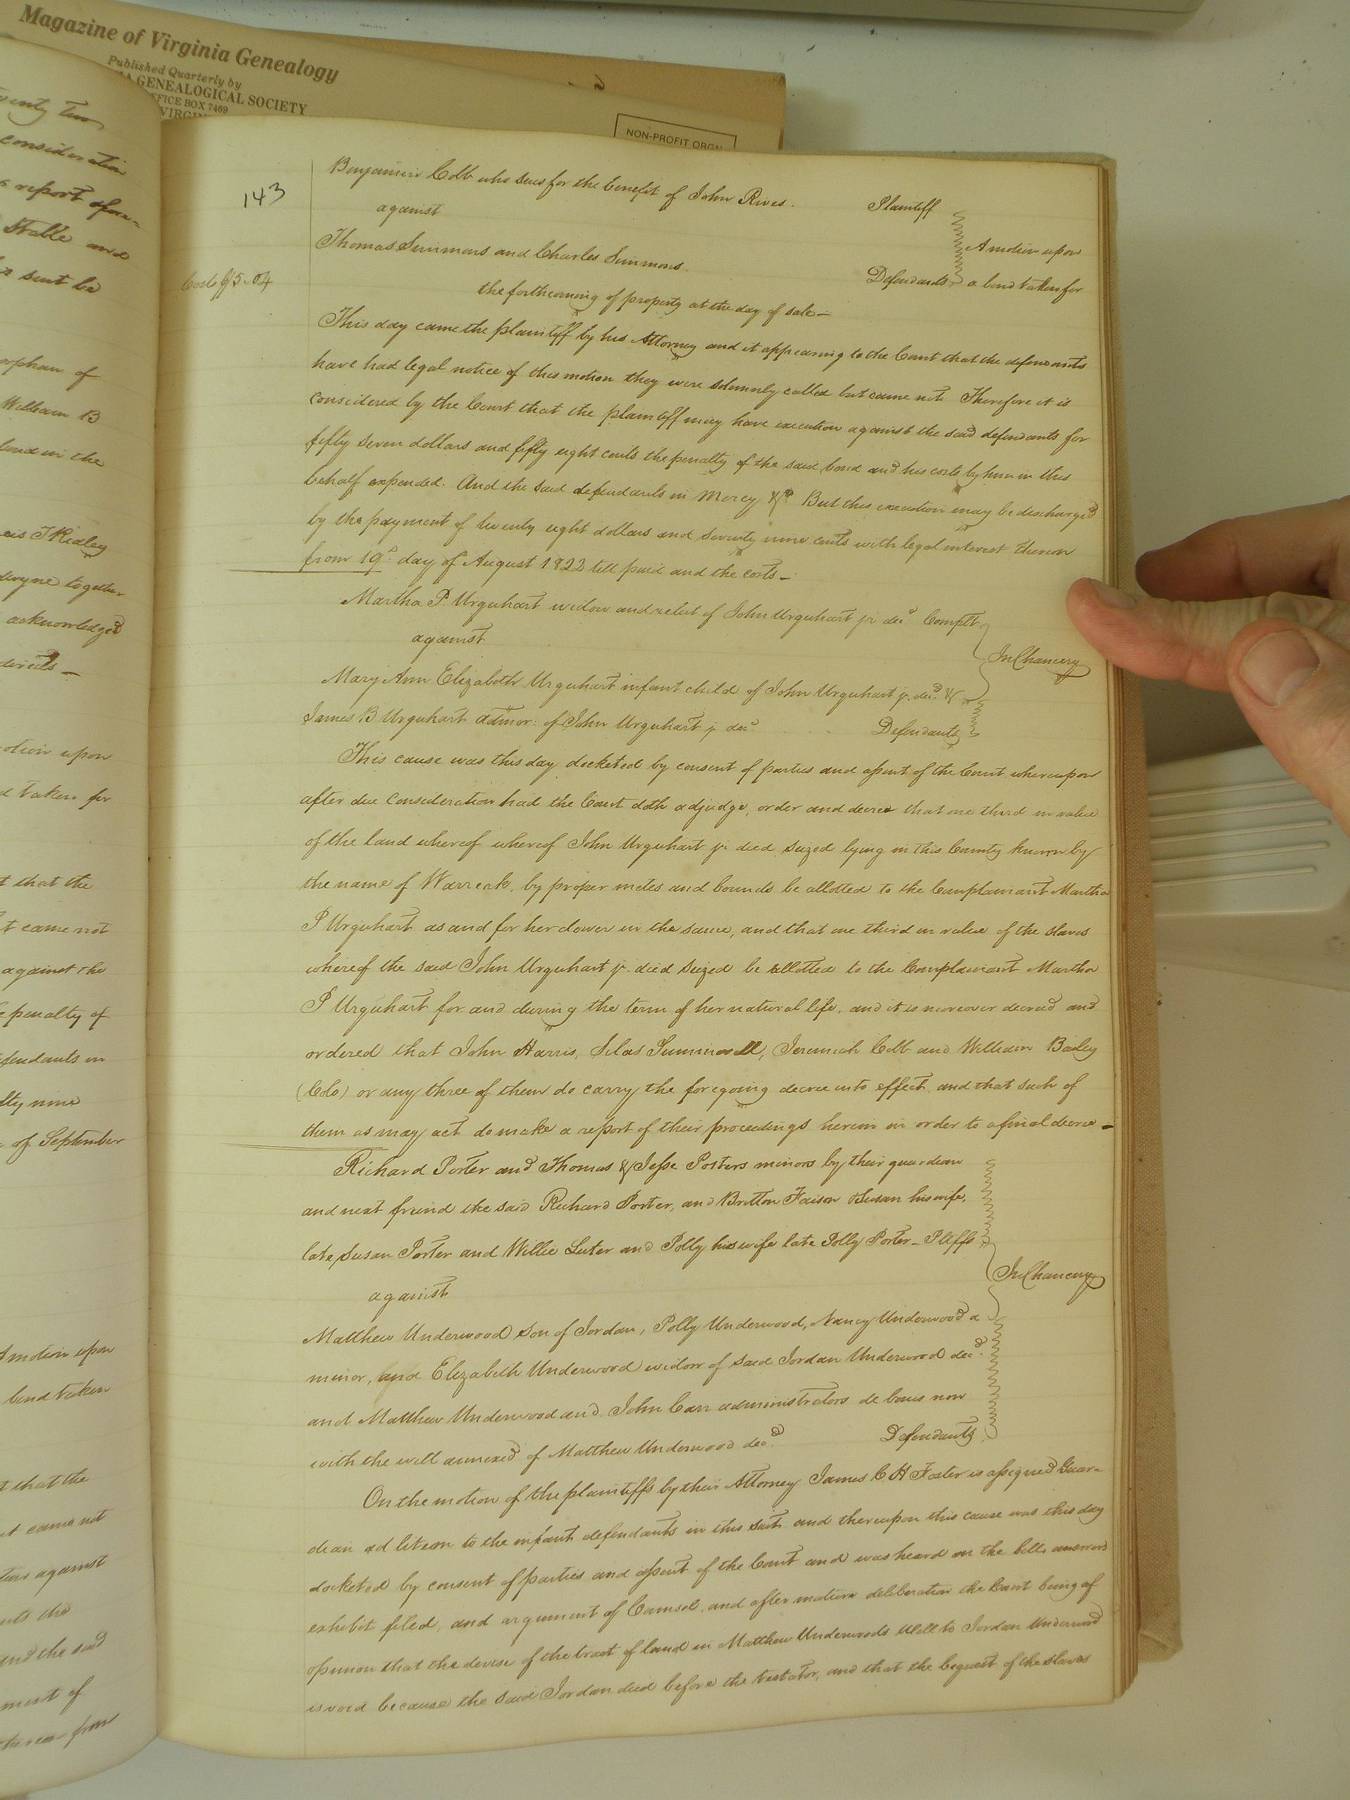 Magazine of Virginia Genealogy
Published Quarterly by
GENEALOGICAL SOCIETY
OFFICE BOX 7469
VIRGIN
NON-PROFIT ORGN
143
Benjamin Cobb who sues for the benefit of John Rives. Plaintiff
against
A motion upon
Thomas Simmons and Charles Simmons. Defendants a bond taken for
Costs $5.04
the forthcoming of property at the day of sale—
This day came the plaintiff by his Attorney and it appearing to the Court that the defendants
have had legal notice of this motion they were solemnly called but came not. Therefore it is
considered by the Court that the plaintiff may have execution against the said defendants for
fifty seven dollars and fifty eight cents the penalty of the said bond and his costs by him in this
behalf expended. And the said defendants in Mercy &c But this execution may be discharged
by the payment of twenty eight dollars and seventy nine cents with legal interest thereon
from 19th day of August 1823 till paid and the costs—
Martha P Urquhart widow and relict of John Urquhart jr decd Complt
against
In Chancery
Mary Ann Elizabeth Urquhart infant child of John Urquhart jr decd &
James B Urquhart admor: of John Urquhart jr decd Defendants
This cause was this day docketed by consent of parties and assent of the Court whereupon
after due consideration had the Court doth adjudge, order and decree that one third in value
of the land whereof whereof John Urquhart jr died seized lying in this County known by
the name of Warreck, by proper metes and bounds be allotted to the Complainant Martha
P Urquhart as and for her dower in the same, and that one third in value of the slaves
whereof the said John Urquhart jr. died seized be allotted to the Complainant Martha
P Urquhart for and during the term of her natural life, and it is moreover decreed and
ordered that John Harris, Silas Summerell, Jeremiah Cobb and William Bailey
(Colo) or any three of them do carry the foregoing decree into effect, and that such of
them as may act do make a report of their proceedings herein in order to a final decree—
Richard Porter and Thomas & Jesse Porters minors by their guardian
and next friend the said Richard Porter, and Britton Faison & Susan his wife,
late Susan Porter and Willie Luter and Polly his wife late Polly Porter— Pltffs
In Chancery
against
Matthew Underwood son of Jordan, Polly Underwood, Nancy Underwood a
minor, and Elizabeth Underwood widow of said Jordan Underwood decd
and Matthew Underwood and John Carr administrators de bonis non
with the will annexed of Matthew Underwood decd Defendants
On the motion of the plaintiffs by their Attorney James C H Foster is assigned Guar-
dian ad litem to the infant defendants in this suit and thereupon this cause was this day
docketed by consent of parties and assent of the Court and was heard on the bill, answers
exhibit filed, and argument of Counsel, and after mature deliberation the Court being of
opinion that the devise of the tract of land in Matthew Underwoods Will to Jordan Underwood
is void because the said Jordan died before the testator, and that the bequest of the slaves